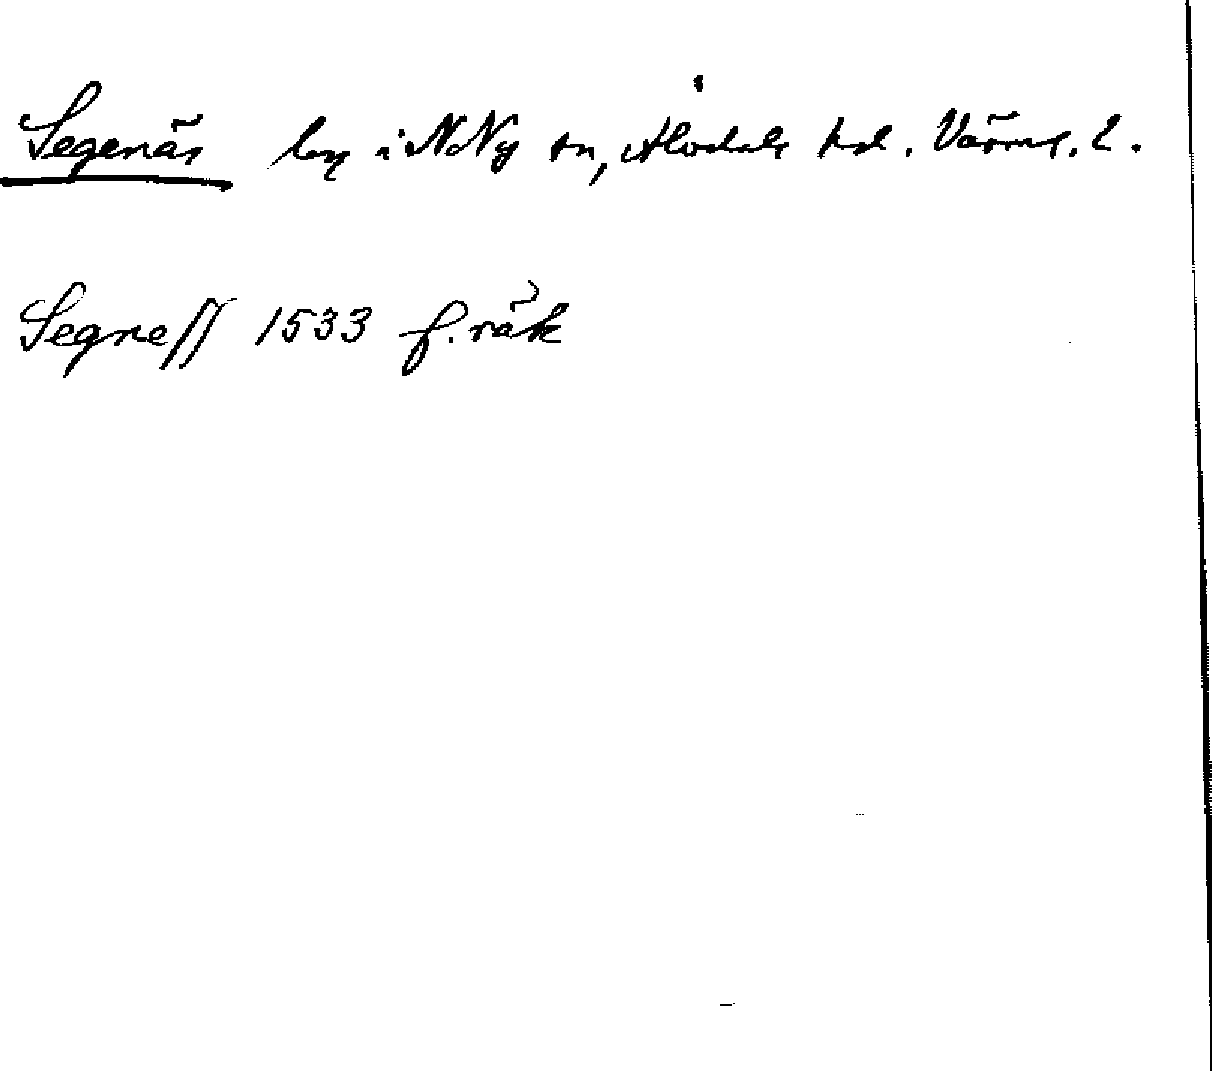 Segenäs by i N Ny sn, Älvdals hd. Värml. l.
Segness 1533 f. räk